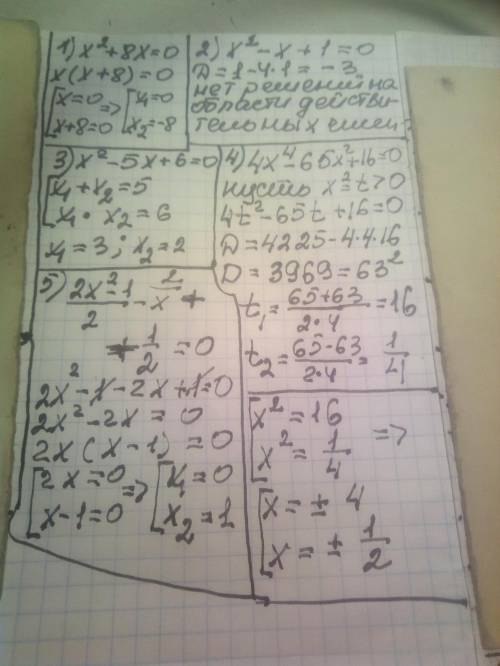 1) x²+8x=0
x(x+8)=0
[x=0 => [x₁=0
x+8=0 x₂=-8
2) x²-x+1=0
D=1-4·1=-3
нет решений на
области действи-
тельных чисел
3) x²-5x+6=0
[x₁+x₂=5
x₁·x₂=6
x₁=3; x₂=2
4) 4x⁴-65x²+16=0
пусть x²=t>0
4t²-65t+16=0
D=4225-4·4·16
D=3969=63²
t₁=(65+63)/(2·4)=16
t₂=(65-63)/(2·4)=1/4
[x²=16
x²=1/4 =>
[x=±4
x=±1/2
5) (2x²-1)/2-2/x+
+1/2=0
2x²-1-2x+1=0
2x²-2x=0
2x(x-1)=0
[2x=0 => [x₁=0
x-1=0 x₂=1